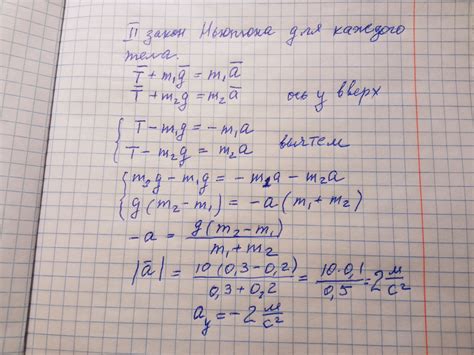 II закон Ньютона для каждого
тела.
T̅ + m₁g̅ = m₁a̅
T̅ + m₂g̅ = m₂a̅ ось y вверх
T − m₁g = −m₁a
T − m₂g = m₂a вычтем
m₂g − m₁g = −m₁a − m₂a
g(m₂ − m₁) = −a(m₁ + m₂)
−a = g(m₂ − m₁) / m₁ + m₂
|a̅| = 10(0,3 − 0,2) / 0,3 + 0,2 = 10·0,1 / 0,5 = 2 м/с²
aᵧ = −2 м/с²